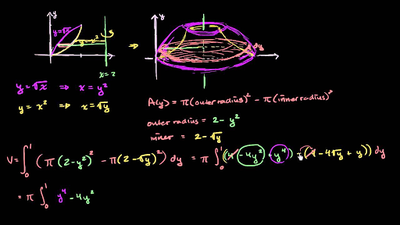 y
y
x
x
x = 2
dy
y = √x ⇒ x = y²
y = x² ⇒ x = √y
A(y) = π(outer radius)² - π(inner radius)²
outer radius = 2 - y²
inner = 2 - √y
V = ∫₀¹ (π(2-y²)² - π(2-√y)²) dy = π ∫₀¹ ((4 - 4y² + y⁴) - (4 - 4√y + y)) dy
= π ∫₀¹ y⁴ - 4y²